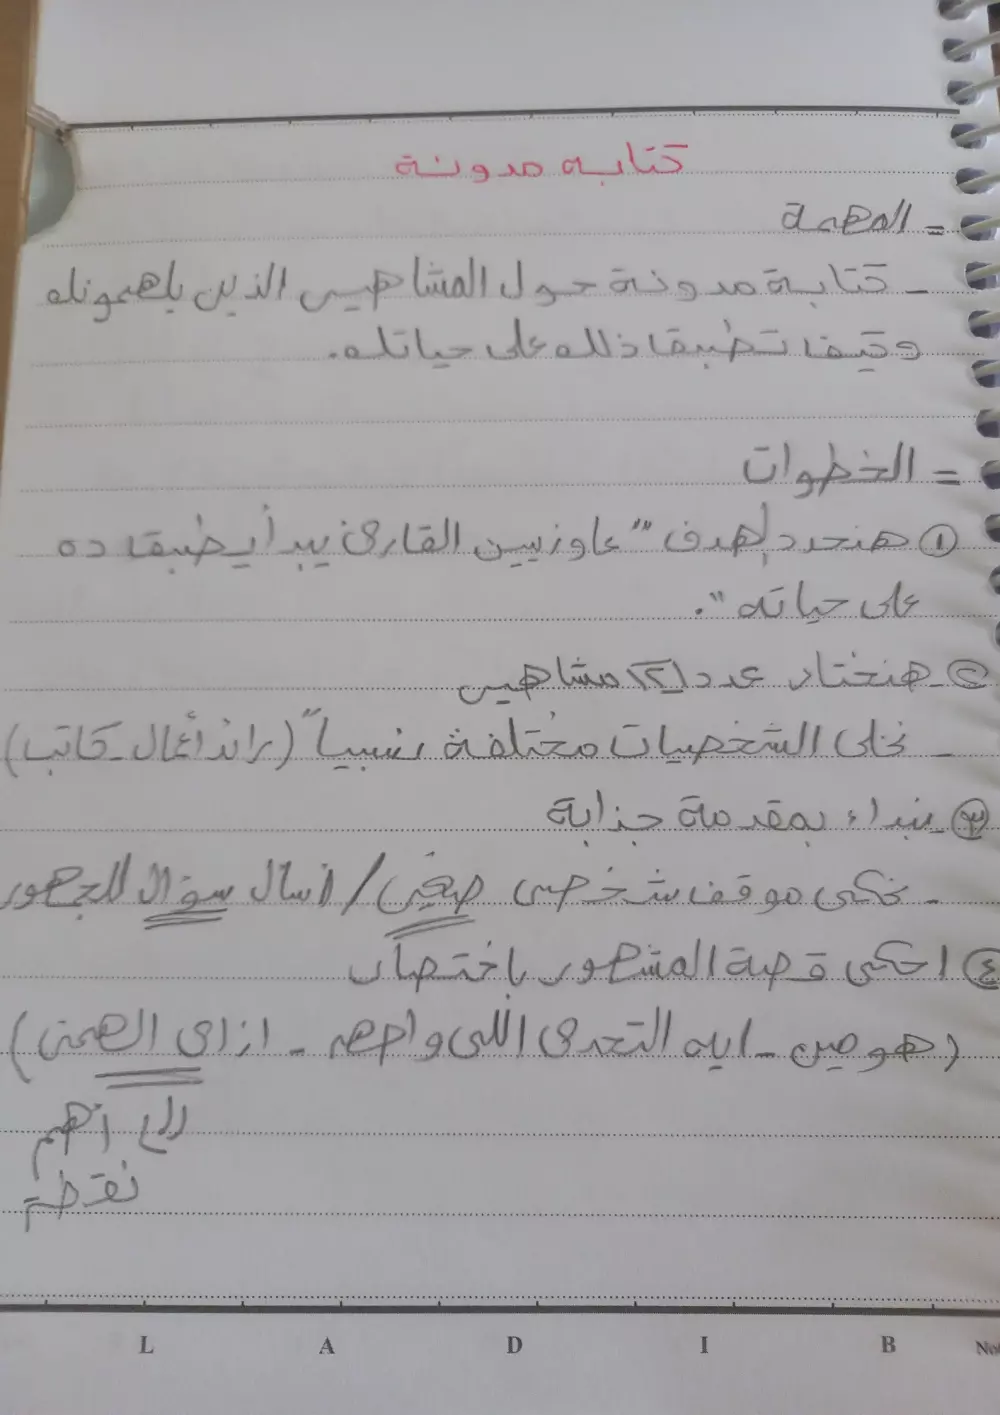 كتابه مدونة
= المهمة
- كتابة مدونة حول المشاهير الذين يلهمونك
وكيف تطبق ذلك على حياتك.
= الخطوات
① هنحدد لهدف "عاوزيين القارئ يبدأ يطبق ده
على حياته".
②- هنختار عدد [٢] مشاهير
- نخلى الشخصيات مختلفة نسبياً (رائد أعمال - كاتب)
③- نبداء بمقدمة جذابة
- نحكى موقف شخصى صغير / اسأل سؤال للجمهور
④ احكى قصة المشهور باختصار
(هو مين - ايه التحدى اللى واجهه - ازاى الهمنى)
اهم
نقطة
L A D I B